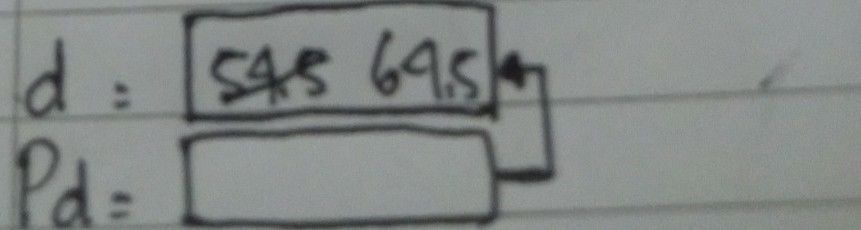 d : 54.5 64.5
Pd =